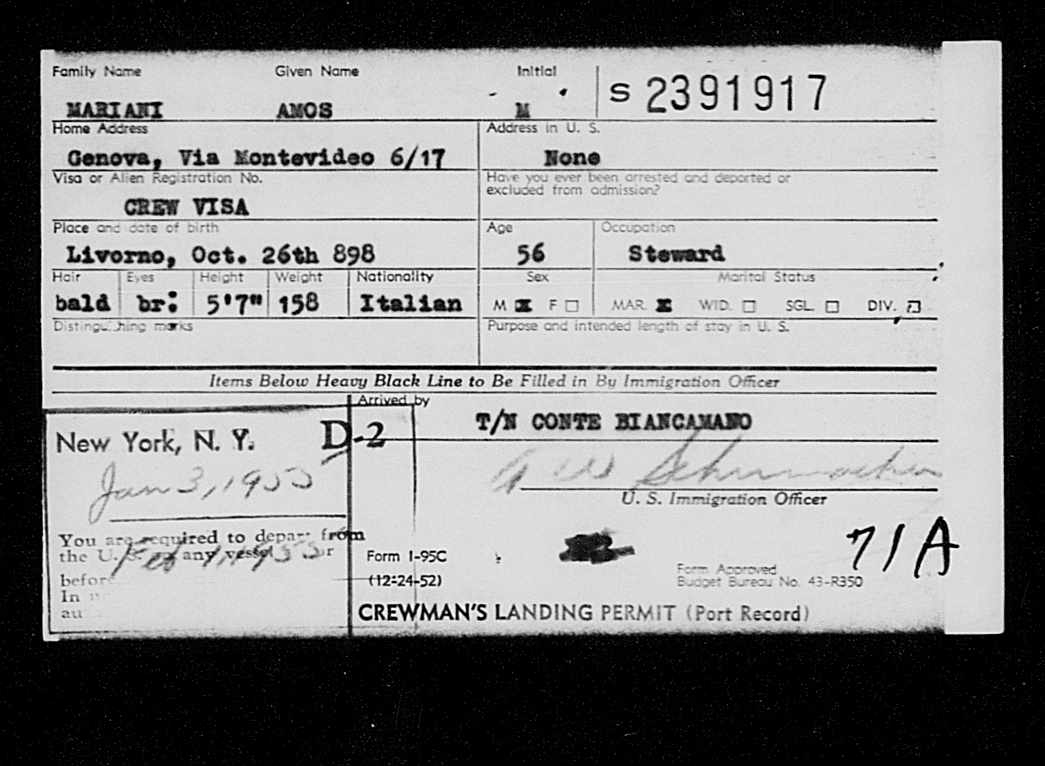 Family Name Given Name Initial
MARIANI AMOS M
S 2391917
Home Address Address in U. S.
Genova, Via Montevideo 6/17 None
Visa or Alien Registration No. Have you ever been arrested and deported or
excluded from admission?
CREW VISA
Place and date of birth Age Occupation
Livorno, Oct. 26th 898 56 Steward
Hair Eyes Height Weight Nationality Sex Marital Status
bald br: 5'7" 158 Italian M F MAR. WID. SGL. DIV.
Distinguishing marks Purpose and intended length of stay in U. S.
Items Below Heavy Black Line to Be Filled in By Immigration Officer
Arrived by
T/N CONTE BIANCAMANO
New York, N. Y. D-2
Jan 3, 1955
A W Schumacher
U. S. Immigration Officer
You are required to depart from
the U. S. any vessel
Feb 1, 1955
before
In
au
71A
Form I-95C
(12-24-52)
Form Approved
Budget Bureau No. 43-R350
CREWMAN'S LANDING PERMIT (Port Record)